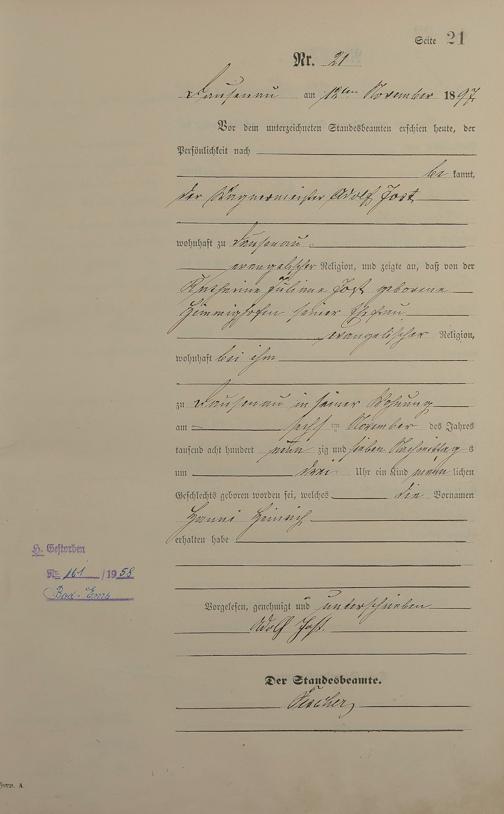 Seite 21
Nr. 21
Dausenau am 12ten November 1897.
Vor dem unterzeichneten Standesbeamten erschien heute, der
Persönlichkeit nach
bekannt,
der Wagnermeister Adolf Jost
wohnhaft zu Dausenau
evangelischer Religion, und zeigte an, daß von der
Katharine Juliane Jost geborene
seiner Ehefrau
evangelischer Religion,
wohnhaft bei ihm
zu Dausenau in seiner Wohnung
am sechs ten November des Jahres
tausend acht hundert neun zig und sieben Nachmittag s
um drei Uhr ein Kind männ lichen
Geschlechts geboren worden sei, welches die Vornamen
Heinrich
erhalten habe
H. Gestorben
Nr. 161 / 1958
Bad-Ems
Vorgelesen, genehmigt und unterschrieben
Adolf Jost.
Der Standesbeamte.
Form. A.